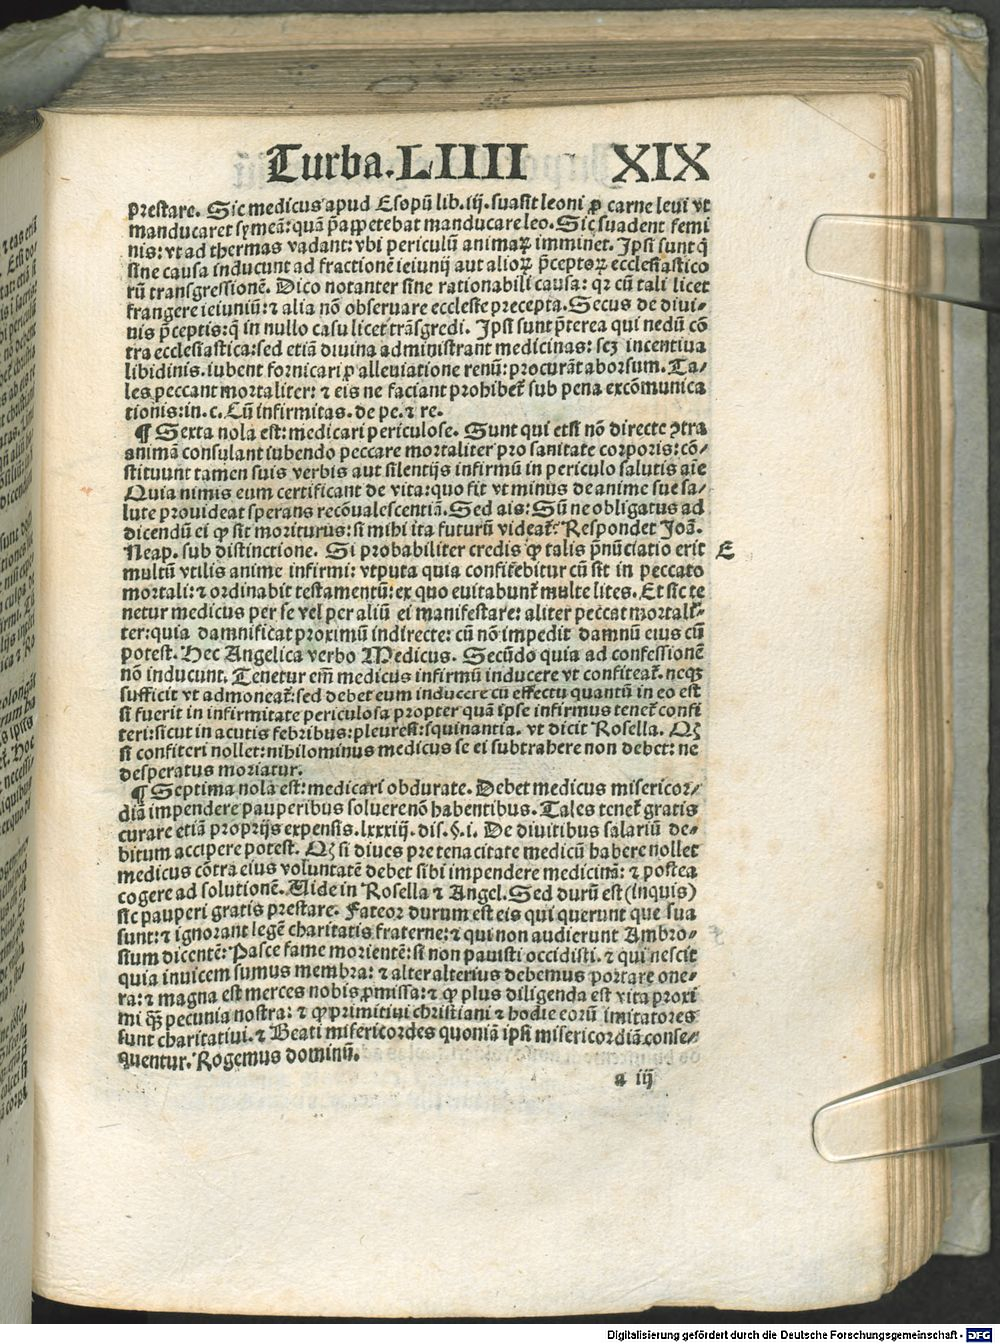 Turba. LIIII XIX
prestare. Sic medicus apud Esopũ lib. iij. suasit leoni ꝓ carne leui vt
manducaret symeã: quã p̃appetebat manducare leo. Sic suadent femi
nis: vt ad thermas vadant: vbi periculũ animaꝝ imminet. Ipsi sunt q̃
sine causa inducunt ad fractionẽ ieiunij aut alioꝝ p̃ceptoꝝ ecclesiastico
rũ transgressionẽ. Dico notanter sine rationabili causa: qꝛ cũ tali licet
frangere ieiuniũ: ⁊ alia nõ obseruare ecclesie precepta. Secus de diui⸗
nis p̃ceptis: q̃ in nullo casu licet trãsgredi. Ipsi sunt p̃terea qui nedũ cõ
tra ecclesiastica: sed etiã diuina administrant medicinas: scꝫ incentiua
libidinis. iubent fornicari ꝓ alleuiatione renũ: procurãt aborsum. Ta⸗
les peccant mortaliter: ⁊ eis ne faciant prohibet̃ sub pena excõmunica
tionis: in. c. Cũ infirmitas. de pe. ⁊ re.
¶ Sexta nola est: medicari periculose. Sunt qui etsi nõ directe ꝯtra
animã consulant iubendo peccare mortaliter pro sanitate corporis: cõ⸗
stituunt tamen suis verbis aut silentijs infirmũ in periculo salutis aĩe
Quia nimis eum certificant de vita: quo fit vt minus de anime sue sa⸗
lute prouideat sperans recõualescentiã. Sed ais: Sũ ne obligatus ad
dicendũ ei ꝙ sit moriturus: si mihi ita futurũ videat̃: Respondet Joã.
Neap. sub distinctione. Si probabiliter credis ꝙ talis p̃nũciatio erit
E
multũ vtilis anime infirmi: vtputa quia confitebitur cũ sit in peccato
mortali: ⁊ ordinabit testamentũ: ex quo euitabunt̃ multe lites. Et sic te
netur medicus per se vel per aliũ ei manifestare: aliter peccat mortali⸗
ter: quia damnificat proximũ indirecte: cũ nõ impedit damnũ eius cũ
potest. Hec Angelica verbo Medicus. Secũdo quia ad confessionẽ
nõ inducunt. Tenetur em̃ medicus infirmũ inducere vt confiteat̃. neqꝫ
sufficit vt admoneat̃: sed debet eum inducere cũ effectu quantũ in eo est
si fuerit in infirmitate periculosa propter quã ipse infirmus tenet̃ confi
teri: sicut in acutis febribus: pleuresi: squinantia. vt dicit Rosella. Qꝫ
si confiteri nollet: nihilominus medicus se ei subtrahere non debet: ne
desperatus moriatur.
¶ Septima nola est: medicari obdurate. Debet medicus misericor⸗
diã impendere pauperibus soluere nõ habentibus. Tales tenet̃ gratis
curare etiã proprijs expensis. lxxxiij. dis. §. i. De diuitibus salariũ de⸗
bitum accipere potest. Qꝫ si diues pre tenacitate medicũ habere nollet
medicus cõtra eius voluntatẽ debet sibi impendere medicinã: ⁊ postea
cogere ad solutionẽ. Uide in Rosella ⁊ Angel. Sed durũ est (inquis)
sic pauperi gratis prestare. Fateor durum est eis qui querunt que sua
sunt: ⁊ ignorant legẽ charitatis fraterne: ⁊ qui non audierunt Ambro⸗
sium dicentẽ: Pasce fame morientẽ: si non pauisti occidisti. ⁊ qui nescit
quia inuicem sumus membra: ⁊ alter alterius debemus portare one⸗
ra: ⁊ magna est merces nobis ꝓmissa: ⁊ ꝙ plus diligenda est vita proxi
mi qꝫ̃ pecunia nostra: ⁊ ꝙ primitiui christiani ⁊ hodie eorũ imitatores
sunt charitatiui. ⁊ Beati misericordes quoniã ipsi misericordiã conse⸗
quentur. Rogemus dominũ.
a iij
Digitalisierung gefördert durch die Deutsche Forschungsgemeinschaft - DFG